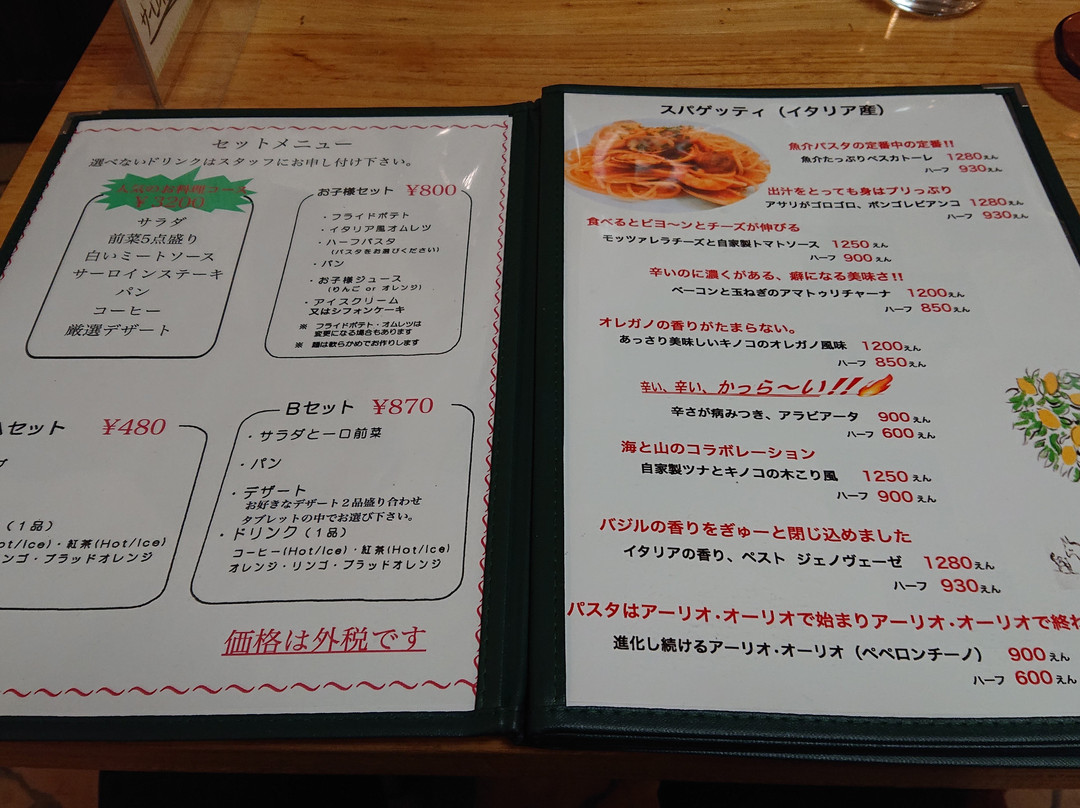 セットメニュー
選べないドリンクはスタッフにお申し付け下さい。
人気のお料理コース
¥3200
サラダ
前菜5点盛り
白いミートソース
サーロインステーキ
パン
コーヒー
厳選デザート
お子様セット ¥800
・フライドポテト
・イタリア風オムレツ
・ハーフパスタ
(パスタをお選びください)
・パン
・お子様ジュース
(りんご or オレンジ)
・アイスクリーム
又はシフォンケーキ
※ フライドポテト・オムレツは
変更になる場合もあります
※ 麺は軟らかめでお作りします
Aセット ¥480
(1品)
Hot/Ice)・紅茶(Hot/Ice)
リンゴ・ブラッドオレンジ
Bセット ¥870
・サラダと一口前菜
・パン
・デザート
お好きなデザート2品盛り合わせ
タブレットの中でお選び下さい。
・ドリンク(1品)
コーヒー(Hot/Ice)・紅茶(Hot/Ice)
オレンジ・リンゴ・ブラッドオレンジ
価格は外税です
スパゲッティ(イタリア産)
魚介パスタの定番中の定番!!
魚介たっぷりペスカトーレ 1280えん
ハーフ 930えん
出汁をとっても身はプリっぷり
アサリがゴロゴロ、ボンゴレビアンコ 1280えん
ハーフ 930えん
食べるとビヨ〜ンとチーズが伸びる
モッツァレラチーズと自家製トマトソース 1250えん
ハーフ 900えん
辛いのに濃くがある、癖になる美味さ!!
ベーコンと玉ねぎのアマトゥリチャーナ 1200えん
ハーフ 850えん
オレガノの香りがたまらない。
あっさり美味しいキノコのオレガノ風味 1200えん
ハーフ 850えん
辛い、辛い、かっら〜い!!
辛さが病みつき、アラビアータ 900えん
ハーフ 600えん
海と山のコラボレーション
自家製ツナとキノコの木こり風 1250えん
ハーフ 900えん
バジルの香りをぎゅーと閉じ込めました
イタリアの香り、ペスト ジェノヴェーゼ 1280えん
ハーフ 930えん
パスタはアーリオ・オーリオで始まりアーリオ・オーリオで終わ
進化し続けるアーリオ・オーリオ(ペペロンチーノ) 900えん
ハーフ 600えん